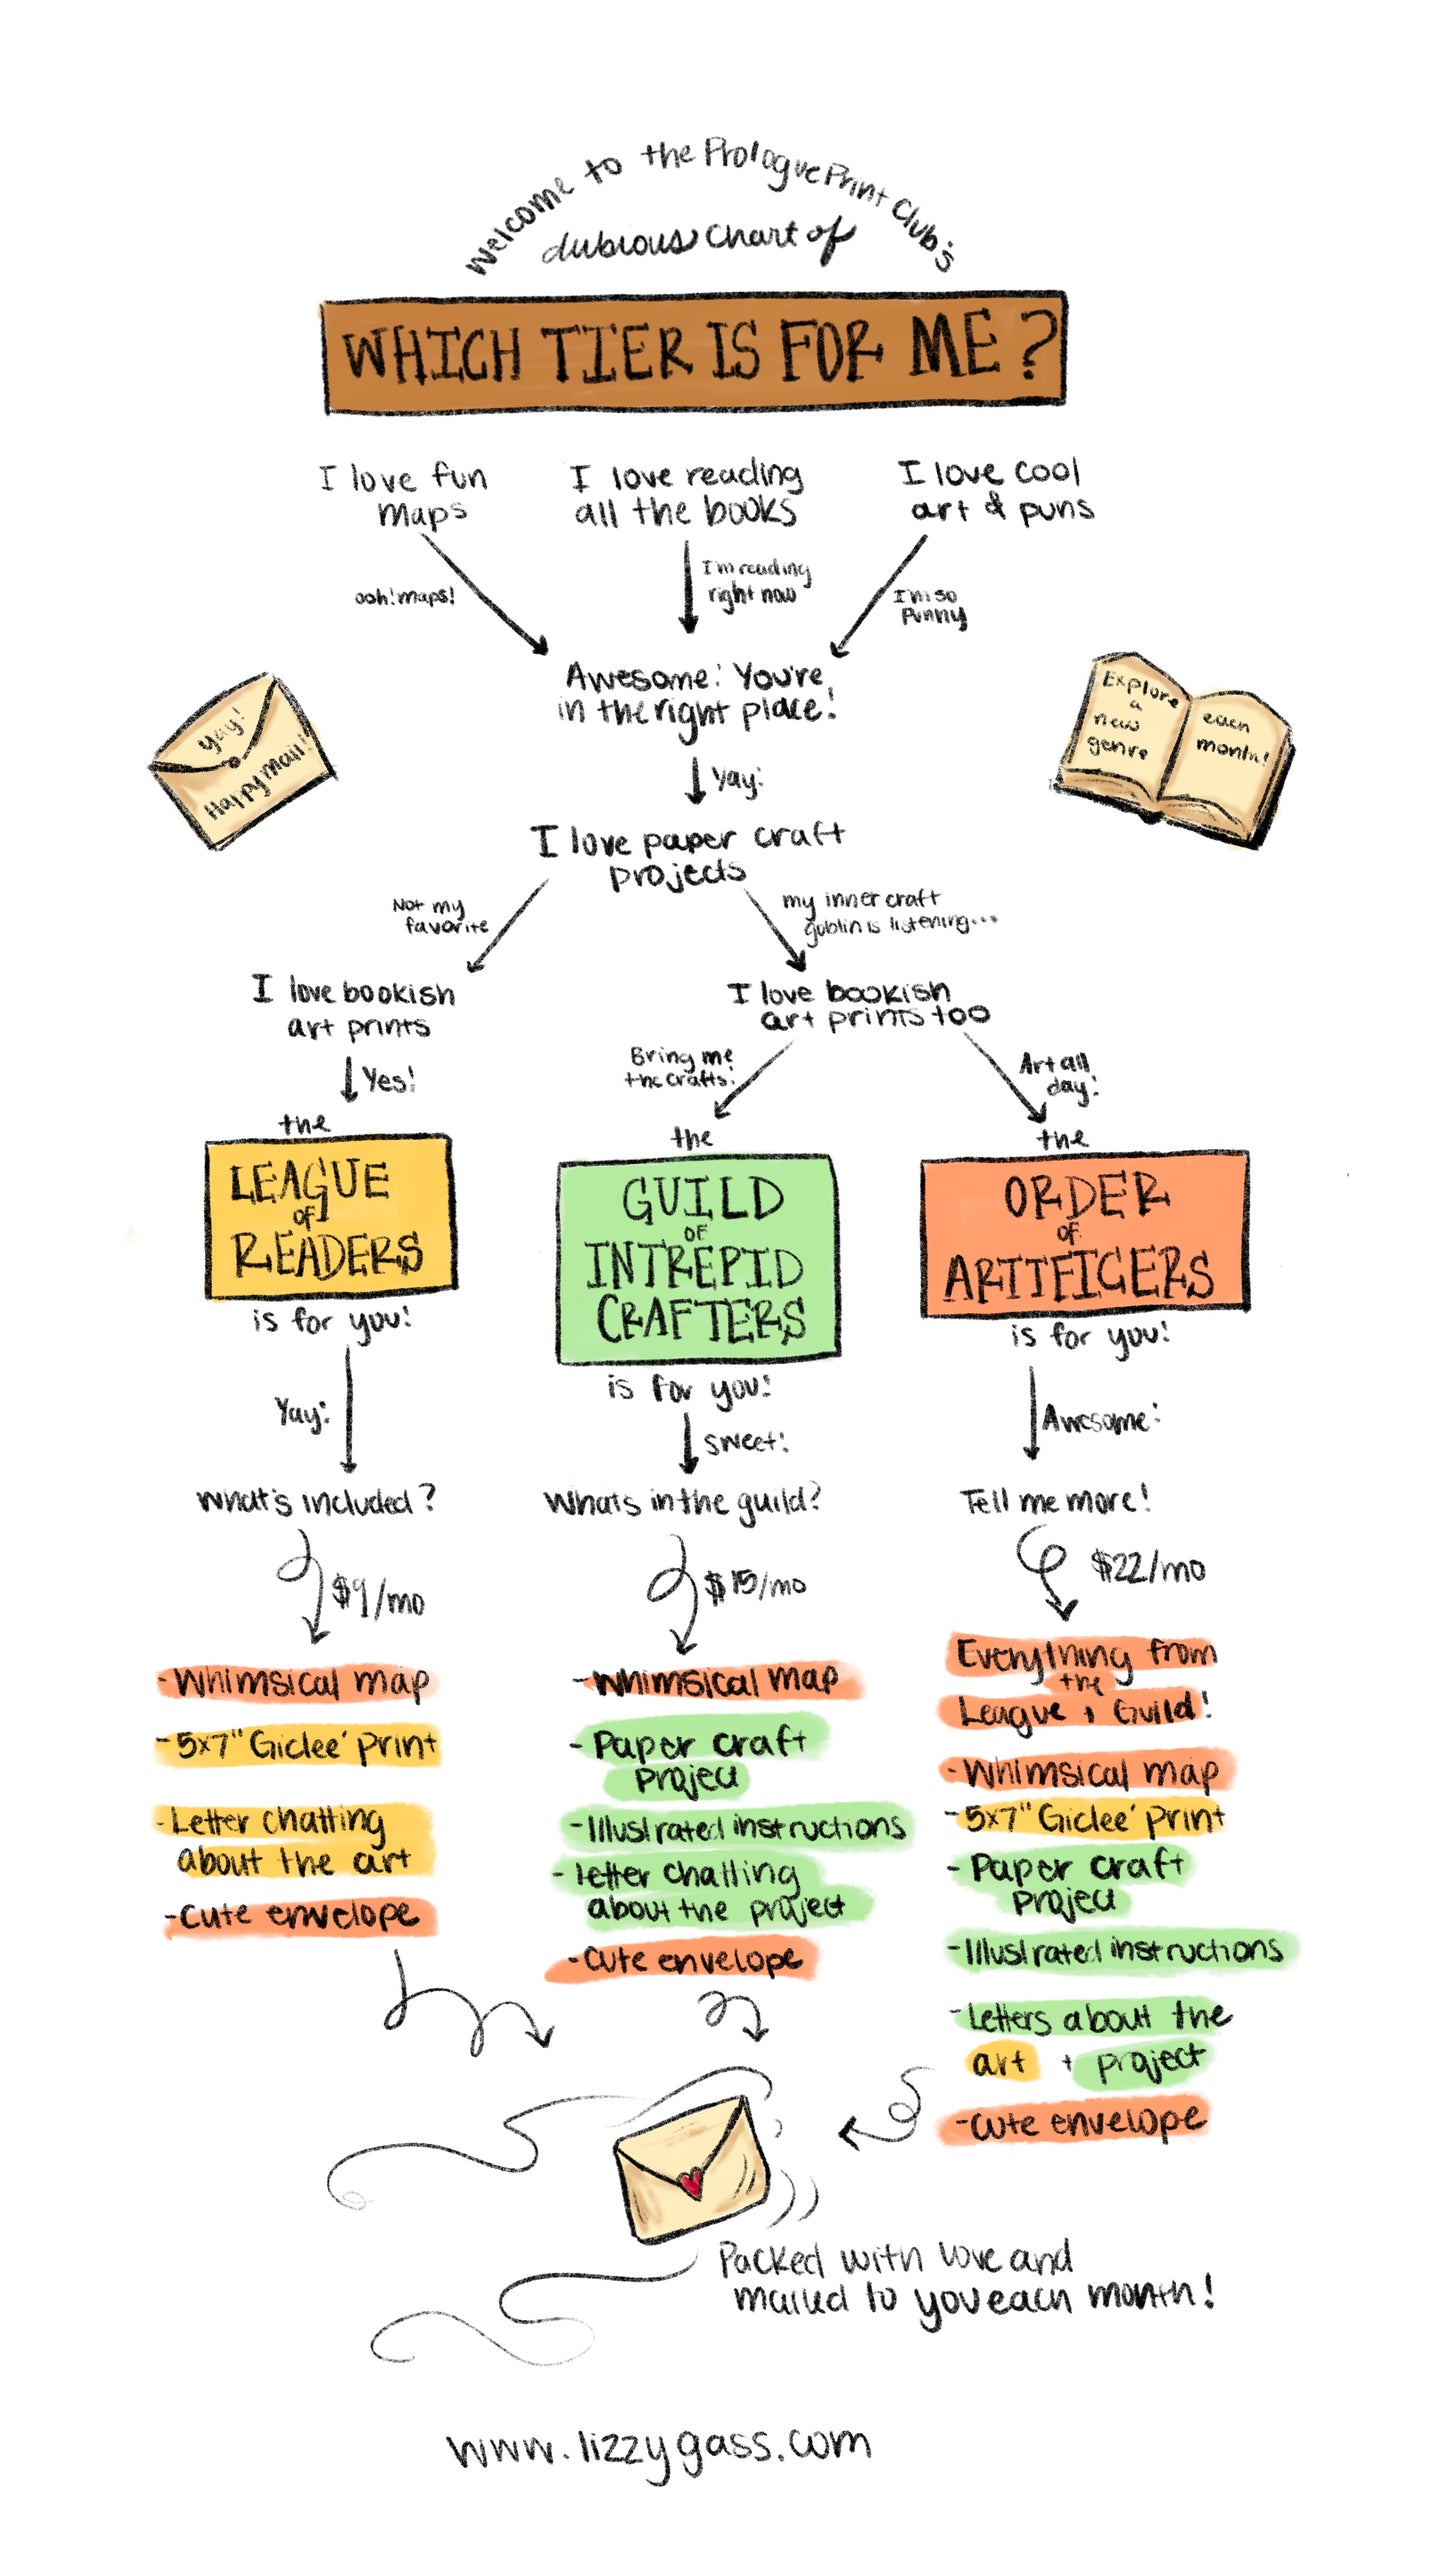 Welcome to the Prologue Print Club's
dubious Chart of
WHICH TIER IS FOR ME?
I love fun
maps
I love reading
all the books
I love cool
art & puns
ooh! maps!
I'm reading
right now
I'm so
Punny
Awesome! You're
in the right place!
Yay!
Happy mail!
Explore
a
new
genre
each
month!
Yay!
I love paper craft
projects
Not my
favorite
my inner craft
goblin is listening...
I love bookish
art prints
I love bookish
art prints too
Yes!
Bring me
the crafts!
Art all
day!
the
LEAGUE
OF
READERS
is for you!
the
GUILD
OF
INTREPID
CRAFTERS
is for you!
the
ORDER
OF
ARTIFICERS
is for you!
Yay!
Sweet!
Awesome!
What's included?
Whats in the guild?
Tell me more!
$9/mo
$15/mo
$22/mo
-Whimsical map
-5x7" Giclee' print
-Letter chatting
about the art
-Cute envelope
-Whimsical map
-Paper craft
project
-Illustrated instructions
-letter chatting
about the project
-Cute envelope
Everything from
the
League & Guild!
-Whimsical map
-5x7" Giclee' print
-Paper craft
project
-Illustrated instructions
-Letters about the
art + project
-Cute envelope
Packed with love and
mailed to you each month!
www.lizzygass.com